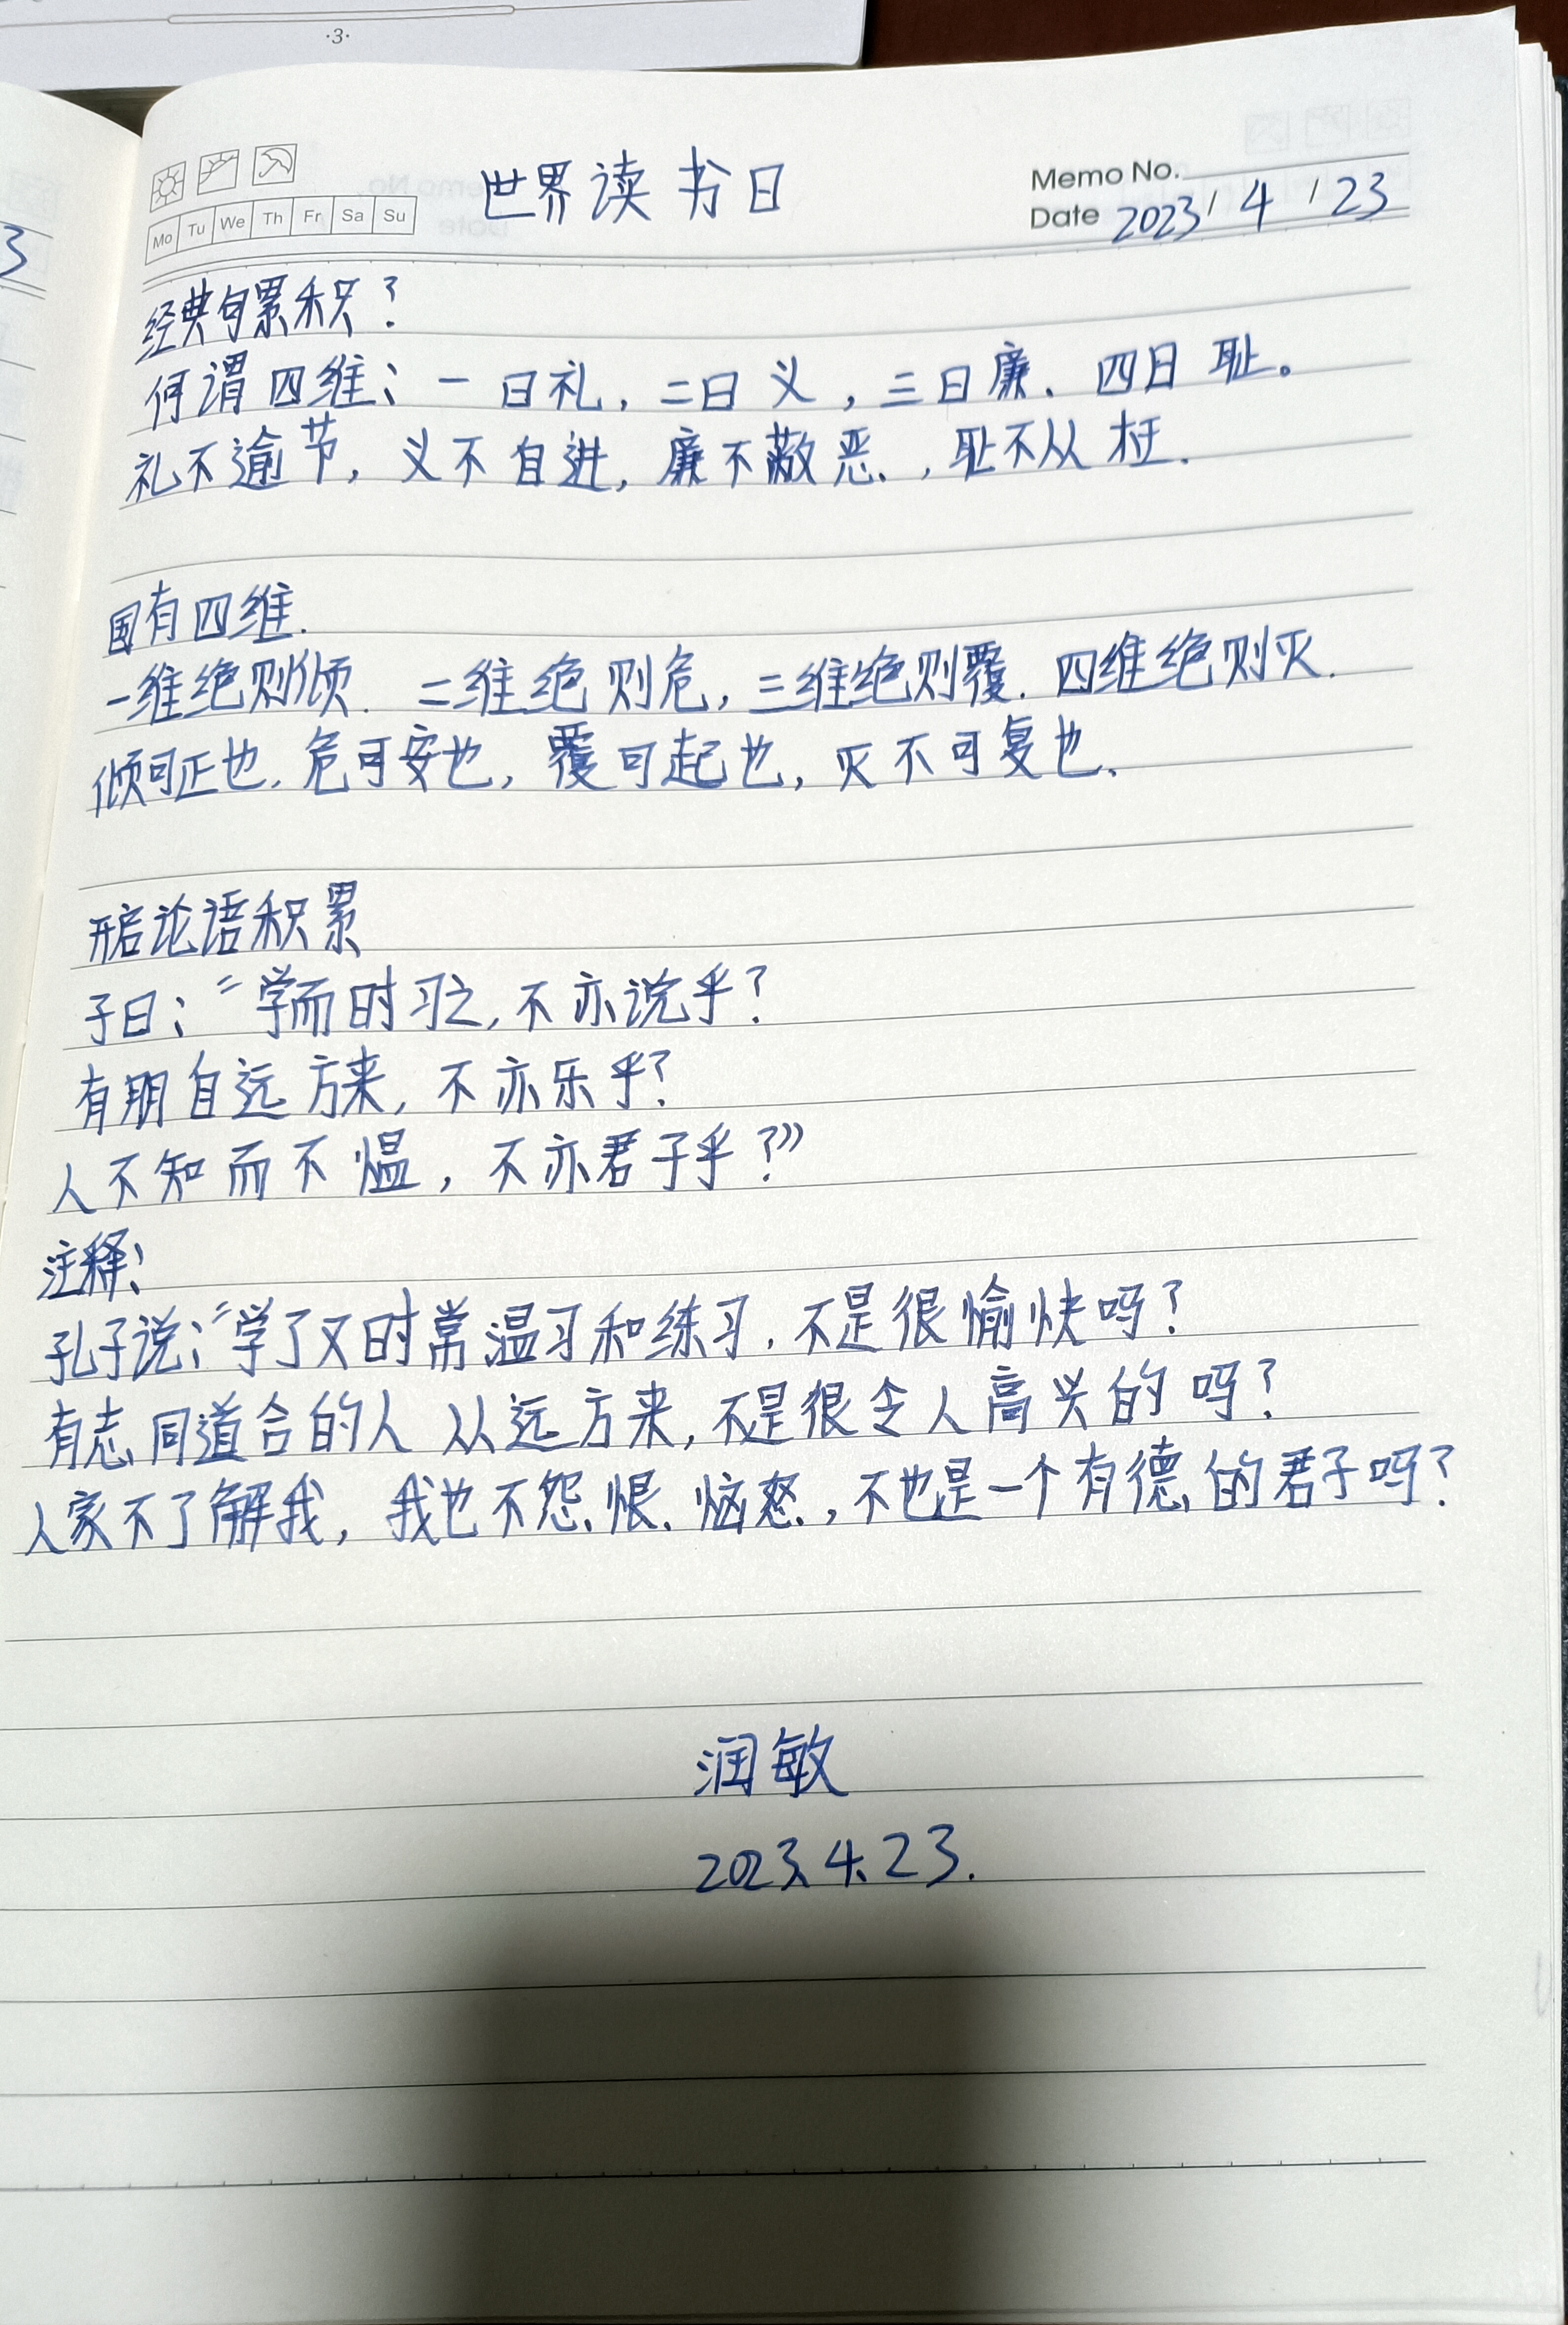 ·3·
世界读书日
Memo No.
Mo Tu We Th Fr Sa Su
Date 2023 / 4 / 23
3
经典句累积?
何谓四维:一曰礼,二曰义,三曰廉、四曰耻。
礼不逾节,义不自进,廉不蔽恶,耻不从枉.
国有四维.
一维绝则倾.二维绝则危,三维绝则覆.四维绝则灭.
倾可正也.危可安也,覆可起也,灭不可复也.
论语积累
子曰:“学而时习之,不亦说乎?
有朋自远方来,不亦乐乎?
人不知而不愠,不亦君子乎?”
注释:
孔子说:“学了又时常温习和练习.不是很愉快吗?
有志同道合的人从远方来,不是很令人高兴的吗?
人家不了解我,我也不怨恨、恼怒,不也是一个有德的君子吗?
润敏
2023.4.23.